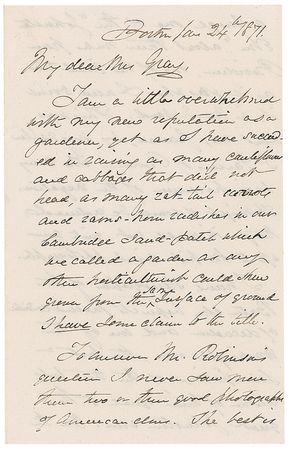 Boston Jan 24th 1871.
My dear Mrs Gray,
I am a little overwhelmed
with my new reputation as a
gardener, yet as I have succeed-
ed in raising as many cauliflowers
and cabbages that did not
head, as many rat-tail carrots
and rams-horn radishes in our
Cambridge sand-patch which
we called a garden as any
other horticulturist could show
grown from the same surface of ground
I have some claim to the title.
To answer Mr. Robinson's
question I never saw more
than two or three good photographs
of American elms. The best is